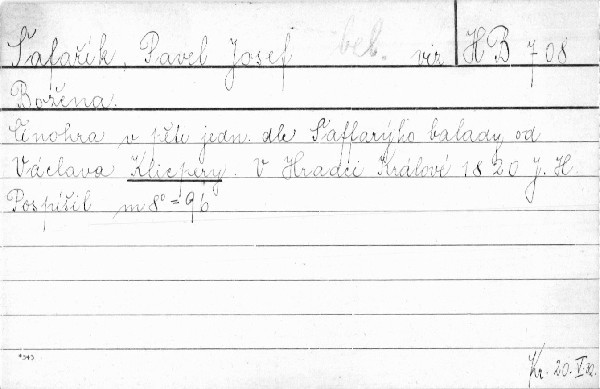 Šafařík, Pavel Josef bel. viz HB 708
Božena.
Činohra v pěti jedn. dle Šaffarýho balady od
Václava Klicpery. V Hradci Králové 1820 J. H.
Pospíšil m 8° = 96
*343
Kr. 20. V.